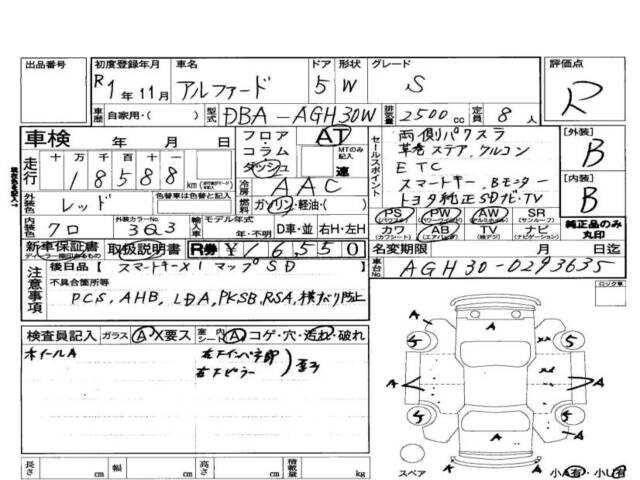 出品番号
初度登録年月 車名 ドア 形状 グレード 評価点
R1年 11月 アルファード 5 W S R
車歴 自家用・( ) 型式 DBA-AGH30W 排気量 2500cc 定員 8人
車検 年 月 日
フロア AT
コラム MTのみ記入
ダッシュ 速
走行 十万千百十一
18588 km
冷房 AAC
外装色 レッド 色替車は色替と記入
燃料 ガソリン・軽油・( )
内装色 クロ 外装カラーNo. 3Q3
輸入車 モデル年式 年・不明 D車・並 右H・左H
セールスポイント
両側パワスラ
革巻ステア、クルコン
ETC
スマートキー、Bモニター
トヨタ純正SDナビ・TV
[外装] B
[内装] B
PS PW AW SR
(パワステ) (パワーウィンドウ) (アルミホイール) (サンルーフ)
カワ AB TV ナビ
(カワシート) (エアバッグ) (地デジ) (ナビゲーション)
純正品のみ丸印
新車保証書 取扱説明書 R券 ¥16,550
名変期限 月 日迄
車台No. AGH30-0293635
注意事項
後日品 [ スマートキーX1 マップSD ]
不具合箇所等
PCS, AHB, LDA, PKSB, RSA, 横すべり防止
ロック車
検査員記入 ガラス A・X要ス 室内シート A・コゲ・穴・汚れ・破れ
ホイールA
A
A
A
A
A
A
5
5
5
5
スペア
小A有・小U有
長さ cm 幅 cm 高さ cm 積載量 kg